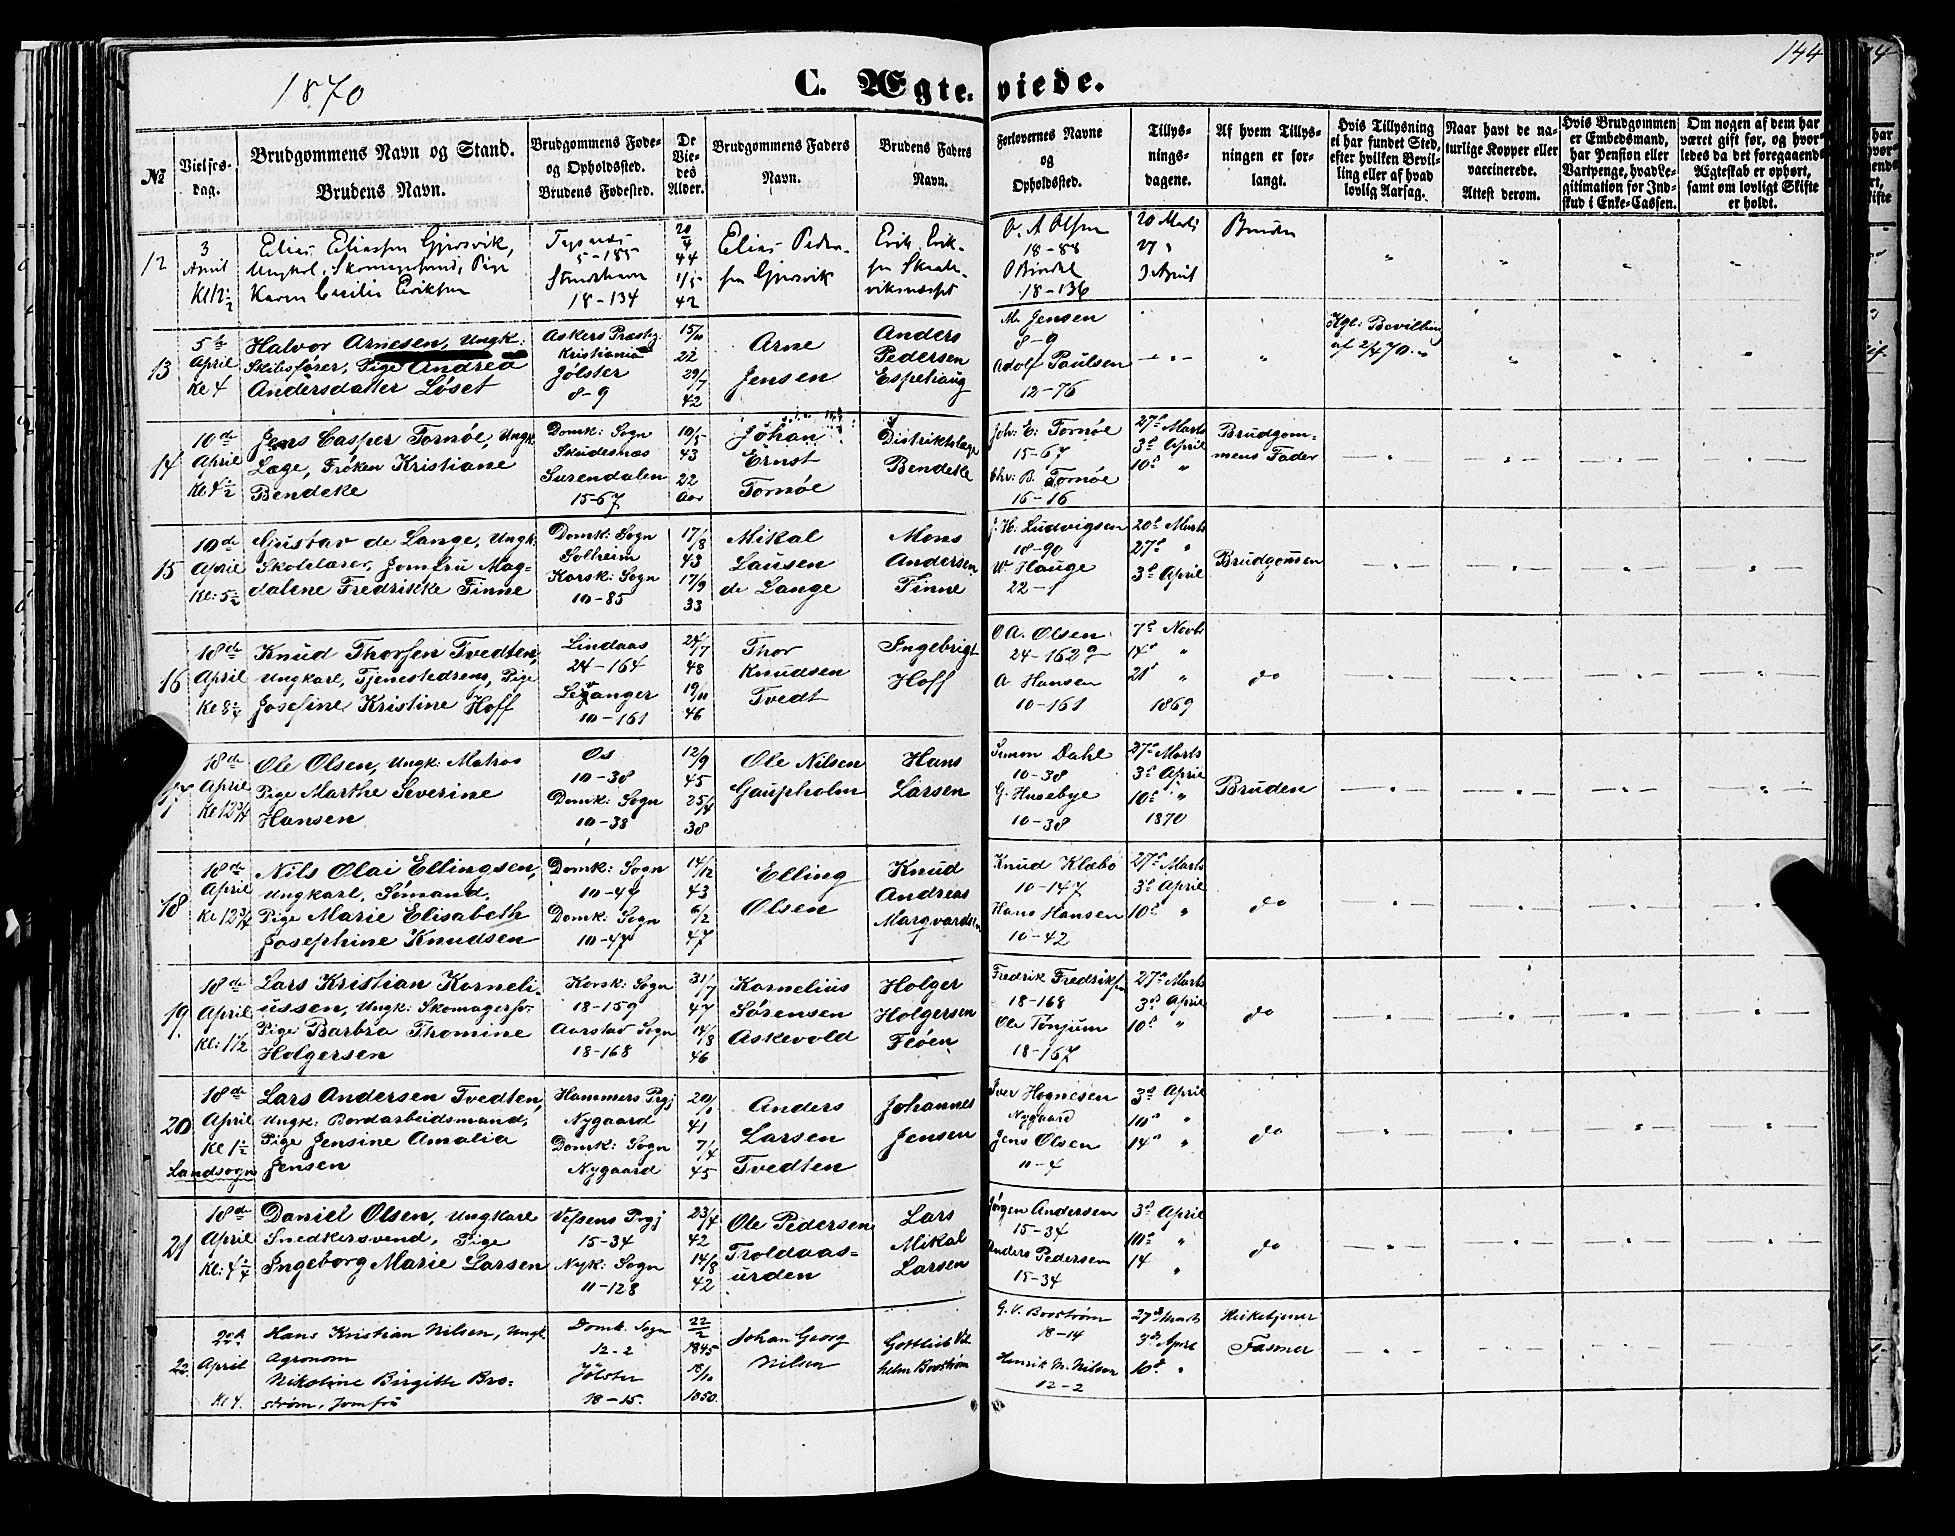 1870
C. Ægteviede.
144
№
Vielses-
dag.
Brudgommens Navn og Stand.
Brudens Navn.
Brudgommens Føde-
og Opholdssted.
Brudens Fødested.
De
Vie-
des
Alder.
Brudgommens Faders
Navn.
Brudens Faders
Navn.
Forlovernes Navne
og
Opholdssted.
Tillys-
nings-
dagene.
Af hvem Tillys-
ningen er for-
langt.
Hvis Tillysning
ei har fundet Sted,
efter hvilken Bevil-
ling eller af hvad
lovlig Aarsag.
Naar havt de na-
turlige Kopper eller
vaccinerede.
Attest derom.
Hvis Brudgommen
er Embedsmand,
har Pension eller
Vartpenge, hvad Le-
gitimation for Ind-
skud i Enke-Cassen.
Om nogen af dem har
været gift før, og hvor-
ledes da det foregaaende
Ægteskab er ophørt,
samt om lovligt Skifte
er holdt.
12
3
April
Elias Eliassen Gjersvik,
Ungkarl,
Karen Cecilie Eriksen
5-185
18-134
20/4
44
1/5
42
Elias Peder-
sen Gjersvik
Erik Erik-
sen
O. A. Olsen
18-88
18-136
20 Marts
27 "
3 April
Bruden
13
5te
April
Kl 4
Halvor Arnesen, Ungk:
Skibsfører, Pige Andrea
Andersdatter Løset
Askers Præstg.
Kristiania
Jølster
8-9
22
29/7
42
Arne
Jensen
Anders
Pedersen
Espehaug
M. Jensen
8-9
Adolf Paulsen
12-76
Kgl: Bevilling
af 2/4 70.
14
10de
April
Kl 4½
Jens Casper Tornøe, Ungk.
Læge, Frøken Kristiane
Bendeke
Domk: Sogn
Skudesnæs
Surendalen
15-67
10/5
43
22
Aar
Johan
Ernst
Tornøe
Distriktslæge
Bendeke
Joh: E: Tornøe
15-67
Chr: B. Tornøe
16-16
27d Marts
3d April
10d "
Brudgom-
mens Fader
15
10de
April
Kl: 5½
Gustav de Lange, Ungk:
Skolelærer, Jomfru Mag-
dalene Fredrikke Finne
Domk: Sogn
Solheim
Korsk: Sogn
10-85
17/8
43
17/9
33
Mikal
Lausen
de Lange
Mons
Andersen
Finne
J. H. Ludvigsen
18-90
W Hauge
22-1
20d Marts
27d "
3d April
Brudgommen
16
18de
April
Knud Thorsen Tvedten,
Ungkarl, Tjenestedreng, Pige
Josefine Kristine Hoff
Lindaas
24-164
Leganger
10-161
24/7
48
19/11
46
Thor
Knudsen
Tvedt
Ingebrigt
Hoff
O A. Olsen
24-162
A Hansen
10-161
7d Novb
14d "
21d "
1869
do
17
18de
April
Kl 12¾
Ole Olsen, Ungk: Matros
Pige Marthe Severine
Hansen
Os
10-38
Domk: Sogn
10-38
12/9
45
25/4
38
Ole Nilsen
Gaupholm
Hans
Larsen
Simon Dahl
10-38
G. Husebye
10-38
27d Marts
3d April
10d "
1870
Bruden
18
18de
April
Kl 12¾
Nils Olai Ellingsen,
Ungkarl, Sømand,
Pige Marie Elisabeth
Josephine Knudsen
Domk: Sogn
10-47
Domk: Sogn
10-47
14/12
43
6/2
47
Elling
Olsen
Knud
Andreas
Margvardsen
Knud Klæbo
10-147
Hans Hansen
10-42
27d Marts
3d April
10d "
do
19
18de
April
Kl: 1½
Lars Kristian Korneli-
ussen, Ungk: Skomagersv.
Pige Barbra Thomine
Holgersen
Korsk: Sogn
18-159
Aarstad Sogn
18-168
31/7
47
14/8
46
Kornelius
Sørensen
Askevold
Holger
Holgersen
Fløen
Fredrik Fredriksen
18-168
Ole Tønjum
18-167
27d Marts
3d April
10d "
do
20
18de
April
Kl 1½
Landsogn
Lars Andersen Tvedten,
Ungk: Bordarbeidsmand,
Pige Jensine Amalia
Jensen
Hammers Prgj
Nygaard
Domk: Sogn
Nygaard
41
7/4
45
Anders
Larsen
Tvedten
Johannes
Jensen
Iver Hognesen
Nygaard
Jens Olsen
11-4
3d April
10d "
14d "
do
21
18de
April
Daniel Olsen, Ungkarl
Snedkersvend, Pige
Ingeborg Marie Larsen
Vefsens Prgj
15-34
Nyk: Sogn
11-128
23/4
42
14/8
42
Ole Pedersen
Troldaas-
urden
Lars
Mikal
Larsen
Jørgen Andersen
15-34
Anders Pedersen
15-34
3d April
10d "
14 "
do
22
April
Kl 4.
Hans Kristian Nilsen, Ungk.
Agronom
Nikoline Birgitte Bro-
strøm, Jomfru
Domk. Sogn
12-2
Jølster
18-15.
22/2
1845
18/10
1850.
Johan Georg
Nilsen
Gottlieb Vil
helm Boostrøm
G. V. Boostrøm
18-14
Henrik M. Nilsen
12-2
27d Marts
3d April
10d "
Kirketjener
Fasmer